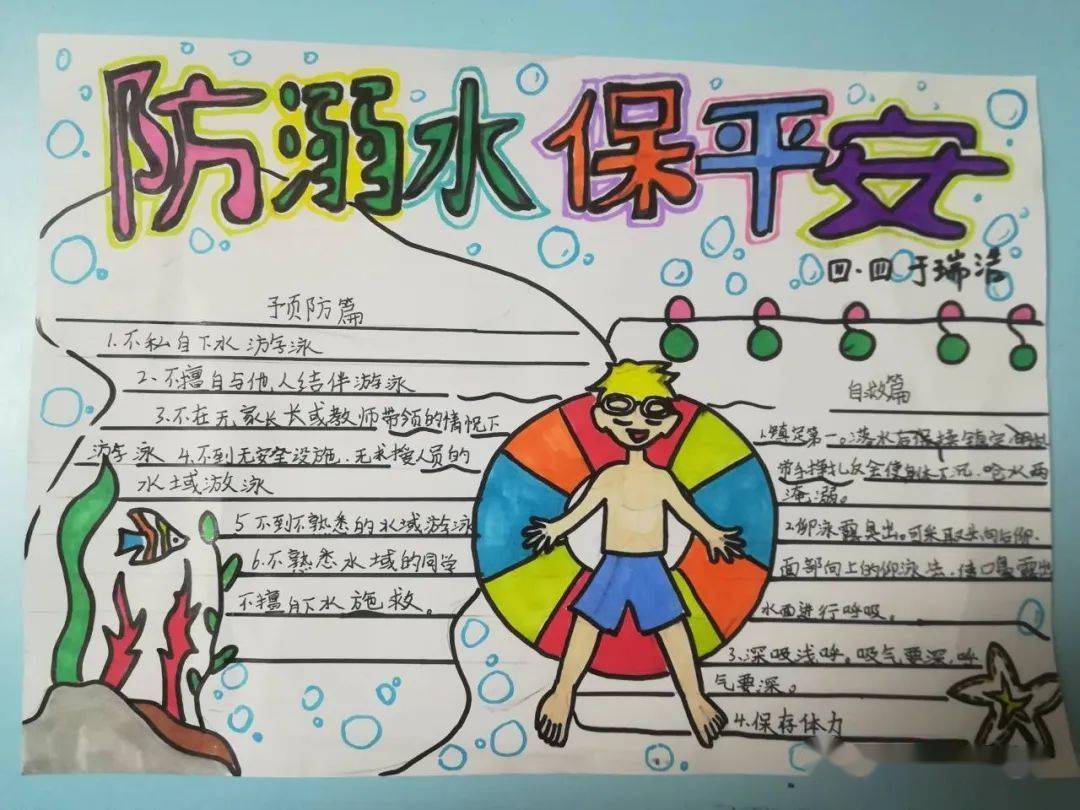 防溺水保平安
四·四 于瑞洁
预防篇
1.不私自下水游泳
2、不擅自与他人结伴游泳
3、不在无家长或教师带领的情况下
游泳 4.不到无安全设施、无救援人员的
水域游泳
5 不到不熟悉的水域游泳
6.不熟悉水域的同学
不擅自下水施救。
自救篇
1.镇定第一。落水后保持镇定
会使身体下沉、呛水而
淹溺。
2.仰泳露鼻出。可采取头向后仰、
面部向上的仰泳法、使口鼻露出
水面进行呼吸。
3、深吸浅呼。吸气要深、呼
气要深。
4、保存体力